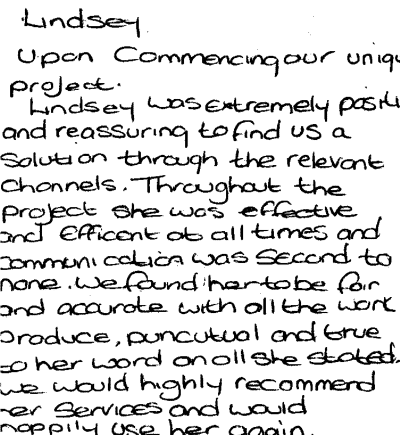 Lindsey
Upon Commencing our uniq
project.
Lindsey was extremely positi
and reassuring to find us a
Solution through the relevant
Channels. Throughout the
project she was effective
and Efficent at all times and
ommunication was Second to
none. We found her to be fair
and accurate with all the work
produce, puncutual and true
to her word on all she stated.
we would highly recommend
er Services and would
happily use her again.